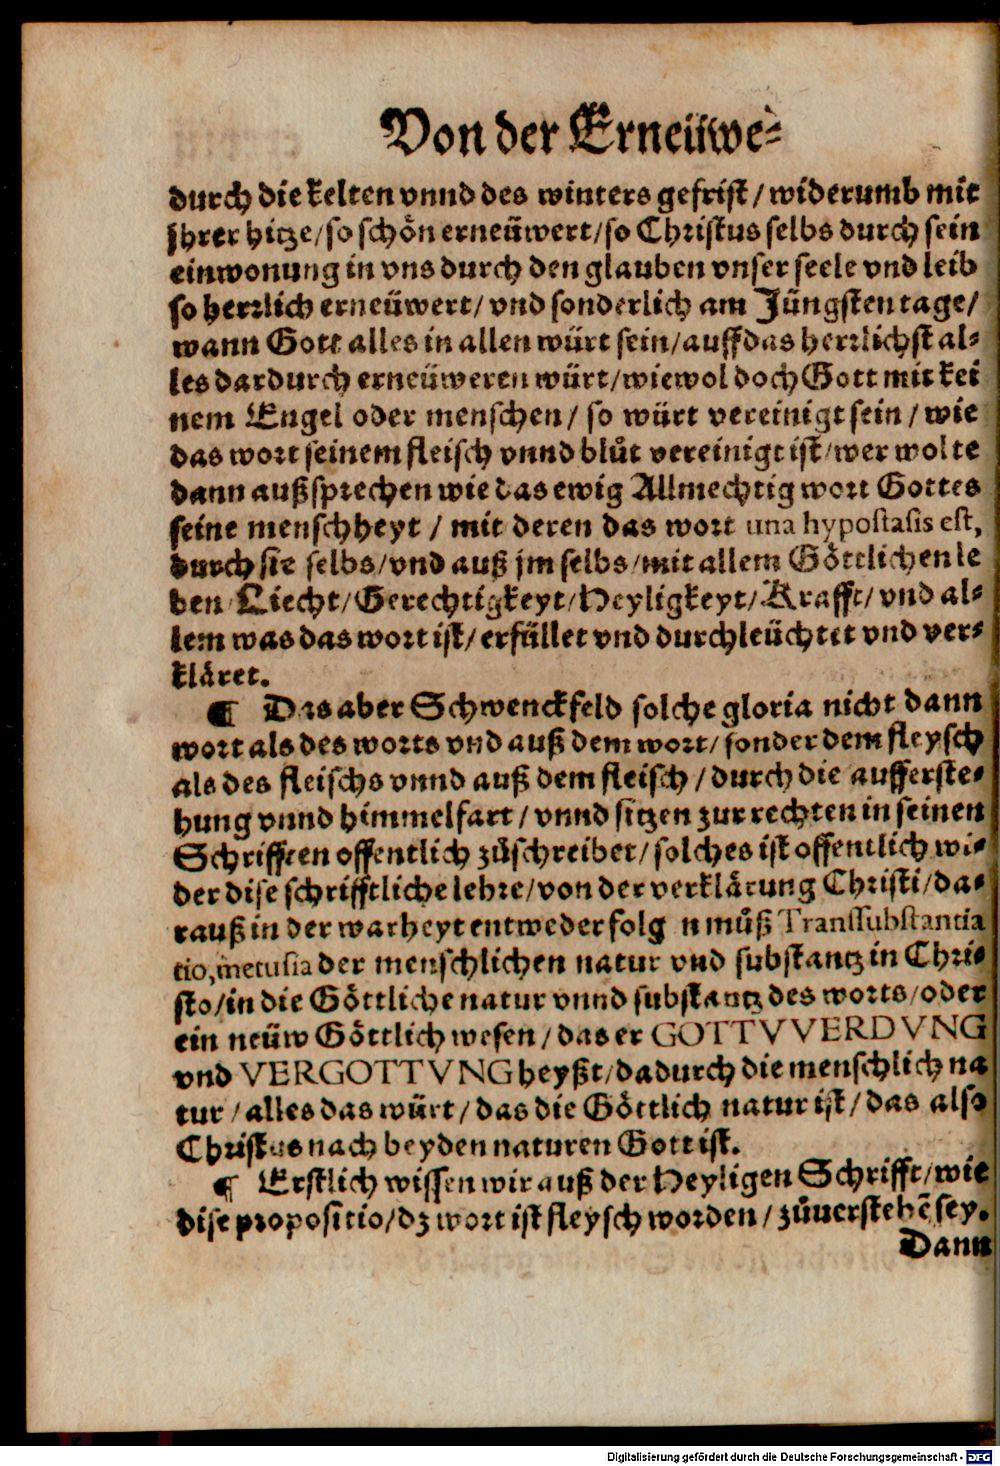 Von der Erneüwe-
durch die kelten vnnd des winters gefrist / widerumb mit
jhrer hitze / so schön erneüwert / so Christus selbs durch sein
einwonung in vns durch den glauben vnser seele vnd leib
so herrlich erneüwert / vnd sonderlich am Jüngsten tage /
wann Gott alles in allen würt sein / auff das herrlichst al-
les dardurch erneüweren würt / wiewol doch Gott mit kei
nem Engel oder menschen / so würt vereinigt sein / wie
das wort seinem fleisch vnnd blůt vereinigt ist / wer wolte
dann außsprechen wie das ewig Allmechtig wort Gottes
seine menschheyt / mit deren das wort una hypostasis est,
durch sie selbs / vnd auß jm selbs / mit allem Göttlichen le
ben / Liecht / Gerechtigkeyt / Heyligkeyt / Krafft / vnd al-
lem was das wort ist / erfüllet vnd durchleüchtet vnd ver-
kläret.
¶ Das aber Schwenckfeld solche gloria nicht dann
wort als des worts vnd auß dem wort / sonder dem fleysch
als des fleischs vnnd auß dem fleisch / durch die aufferste-
hung vnnd himmelfart / vnnd sitzen zur rechten in seinen
Schrifften offentlich zůschreibet / solches ist offentlich wi-
der dise schrifftliche lehre / von der verklärung Christi / da-
rauß in der warheyt entweder folg n můß Transsubstantia
tio, metusia der menschlichen natur vnd substantz in Chri-
sto / in die Göttliche natur vnnd substantz des worts / oder
ein neüw Göttlich wesen / das er GOTTVVERDVNG
vnd VERGOTTVNG heyßt / dadurch die menschlich na
tur / alles das würt / das die Göttlich natur ist / das also
Christus nach beyden naturen Gott ist.
¶ Erstlich wissen wir auß der Heyligen Schrifft / wie
dise propositio / dz wort ist fleysch worden / zůuerstehẽ sey.
Dann
Digitalisierung gefördert durch die Deutsche Forschungsgemeinschaft - DFG